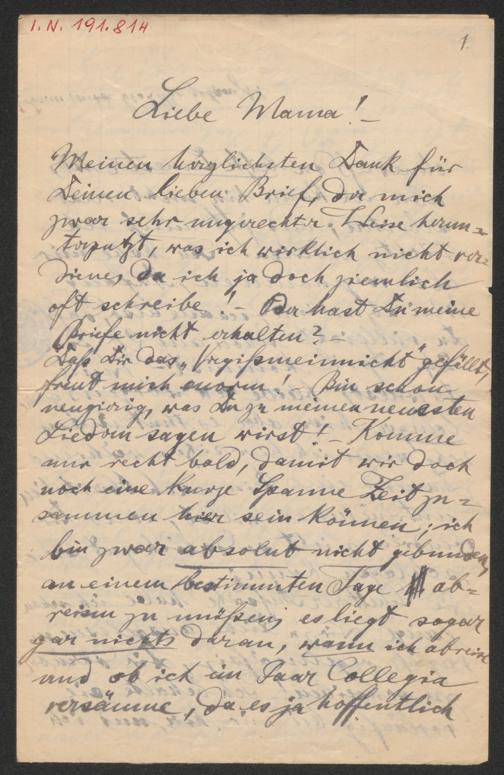 I.N. 191.814
1.
Liebe Mama! –
Meinen herzlichsten Dank für
Deinen lieben Brief, der mich
zwar sehr ungerechter Weise herun=
terputzt, was ich wirklich nicht ver=
diene, da ich ja doch ziemlich
oft schreibe! – Oder hast Du meine
Briefe nicht erhalten? –
Daß Dir das „Vergißmeinnicht“ gefällt,
freut mich enorm! Bin schon
neugierig, was Du zu meinen neuesten
Liedern sagen wirst! – Komme
nur recht bald, damit wir doch
noch eine kurze Spanne Zeit zu=
sammen hier sein können; ich
bin zwar absolut nicht gebunden,
an einem bestimmten Tage ab=
reisen zu müßen; es liegt sogar
gar nichts daran, wann ich abreise
und ob ich ein Paar Collegia
versäume, da es ja hoffentlich